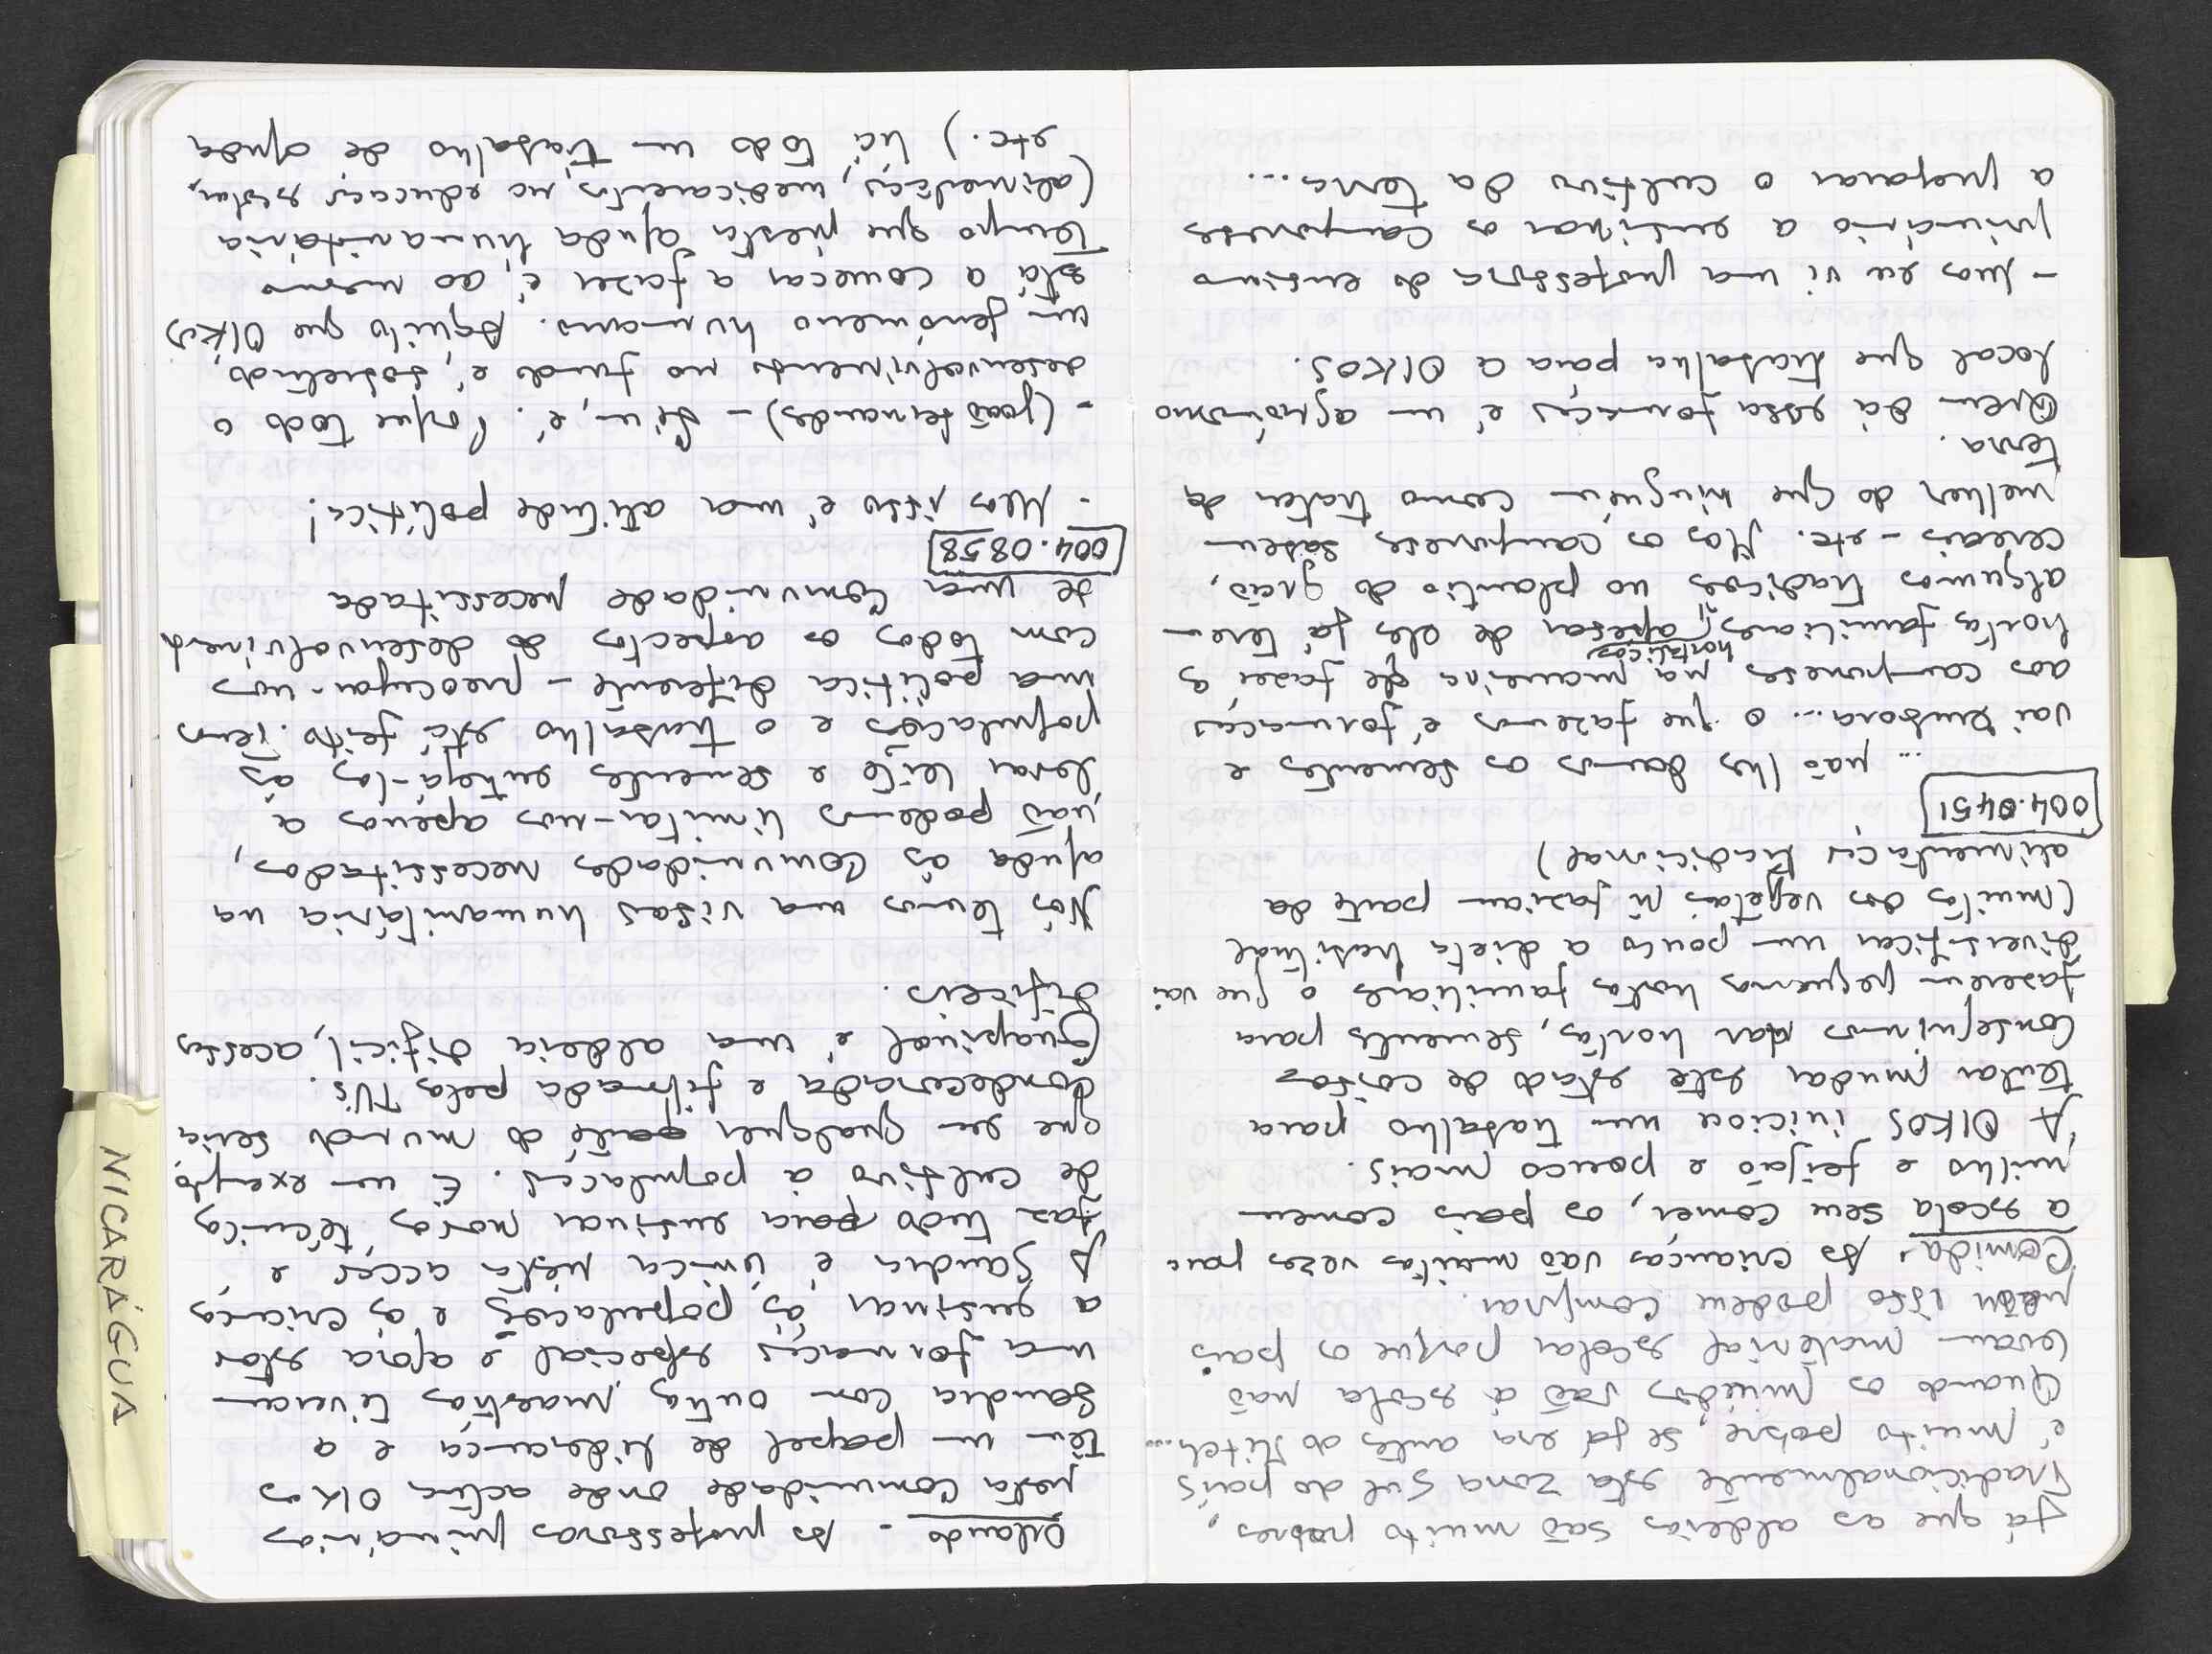 Já que as aldeias são muito pobres,
Tradicionalmente esta zona sul do país
é muito pobre, se já era antes do Mitch...
Quando os miúdos vão à escola não
levam material escolar porque os pais
nem isso podem comprar.
Comida. As crianças vão muitas vezes para
a escola sem comer, os pais comem
milho e feijão e pouco mais.
A OIKOS iniciou um trabalho para
tentar mudar este estado de coisas
Conseguimos dar hortas, sementes para
fazerem pequenas hortas familiares o que vai
diversificar um pouco a dieta habitual
(muitos dos vegetais ñ faziam parte da
alimentação tradicional)
004.0451
... não lhes damos as sementes e
vai embora... o que fazemos é formação
aos camponeses na maneira de fazer as
hortaliças
hortas familiares, apesar de eles já terem
algumas tradições no plantio do grão,
cereais - etc. Mas os camponeses sabem
melhor do que ninguém como tratar da
terra.
Quem dá essa formação é um agrónomo
local que trabalha para a OIKOS.
- Mas eu vi uma professora do ensino
primário a ensinar os camponeses
a preparar o cultivo da terra...
Orlando - As professoras primárias
nesta comunidade onde actua OIKOS
têm um papel de liderança e a
Sandra com outras maestras tiveram
uma formação especial e agora estão
a ensinar às populações e às crianças
A Sandra é única nesta acção e
faz tudo para ensinar novas técnicas
de cultivo à população. É um exemplo
que em qualquer parte do mundo seria
condecorada e filmada pelas TVs.
Guapinol é uma aldeia difícil, acessos
difíceis.
Nós temos uma visão humanitária na
ajuda às comunidades necessitadas,
não podemos limitar-nos apenas a
levar leite e sementes entregá-las às
populações e o trabalho está feito. Temos
uma política diferente - preocupar-nos
com todos os aspectos do desenvolviment
de uma comunidade necessitada
004.0858
- Mas isso é uma atitude política!
- (João Fernandes) - Sim, é. Porque todo o
desenvolvimento no fundo é, sobretudo,
um fenómeno humano. Aquilo que OIKOS
está a começar a fazer é, ao mesmo
tempo que presta ajuda humanitária
(alimentação, medicamentos na educação escolar,
etc.) há todo um trabalho de ajuda
NICARÁGUA